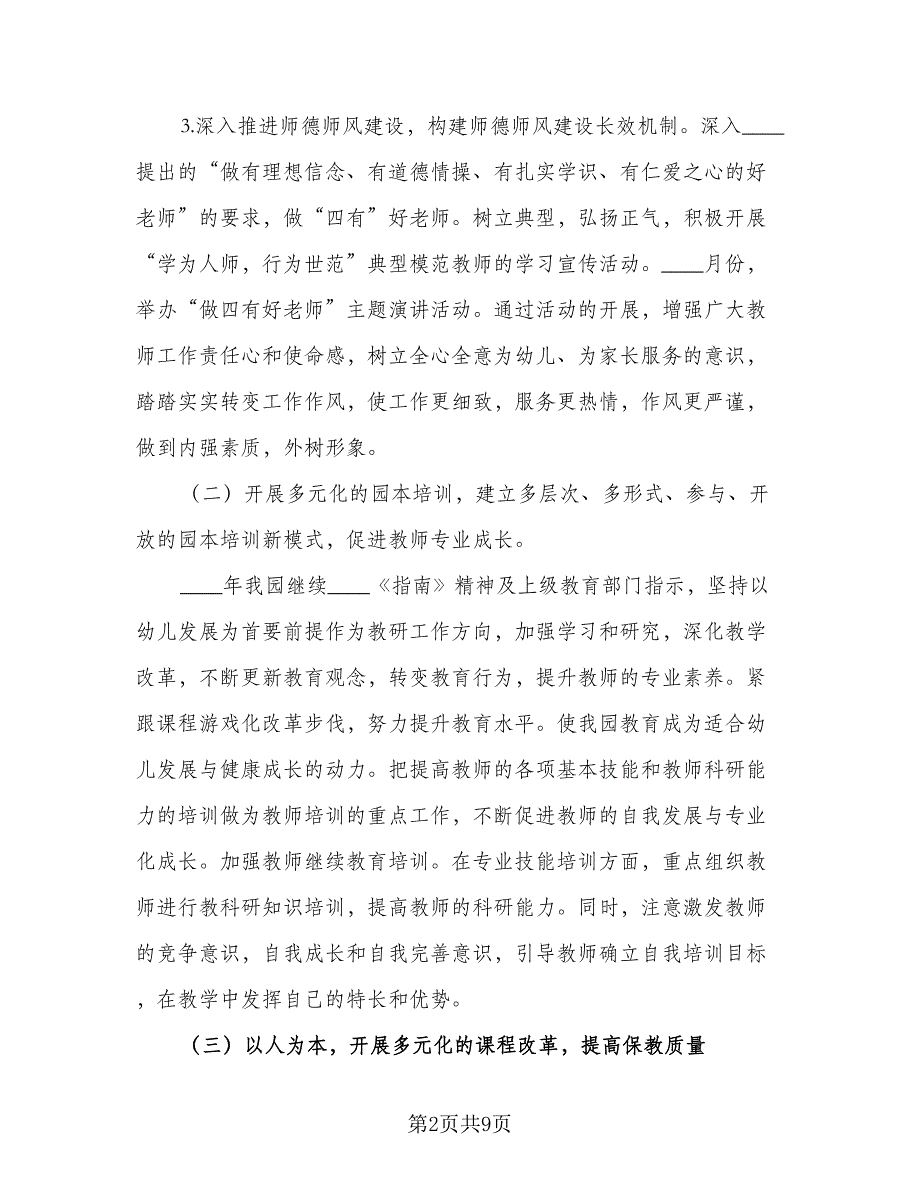 3.深入推进师德师风建设，构建师德师风建设长效机制。深入____
提出的“做有理想信念、有道德情操、有扎实学识、有仁爱之心的好
老师”的要求，做“四有”好老师。树立典型，弘扬正气，积极开展
“学为人师，行为世范”典型模范教师的学习宣传活动。____月份，
举办“做四有好老师”主题演讲活动。通过活动的开展，增强广大教
师工作责任心和使命感，树立全心全意为幼儿、为家长服务的意识，
踏踏实实转变工作作风，使工作更细致，服务更热情，作风更严谨，
做到内强素质，外树形象。
（二）开展多元化的园本培训，建立多层次、多形式、参与、开
放的园本培训新模式，促进教师专业成长。
____年我园继续____《指南》精神及上级教育部门指示，坚持以
幼儿发展为首要前提作为教研工作方向，加强学习和研究，深化教学
改革，不断更新教育观念，转变教育行为，提升教师的专业素养。紧
跟课程游戏化改革步伐，努力提升教育水平。使我园教育成为适合幼
儿发展与健康成长的动力。把提高教师的各项基本技能和教师科研能
力的培训做为教师培训的重点工作，不断促进教师的自我发展与专业
化成长。加强教师继续教育培训。在专业技能培训方面，重点组织教
师进行教科研知识培训，提高教师的科研能力。同时，注意激发教师
的竞争意识，自我成长和自我完善意识，引导教师确立自我培训目标
，在教学中发挥自己的特长和优势。
（三）以人为本，开展多元化的课程改革，提高保教质量
第2页共9页